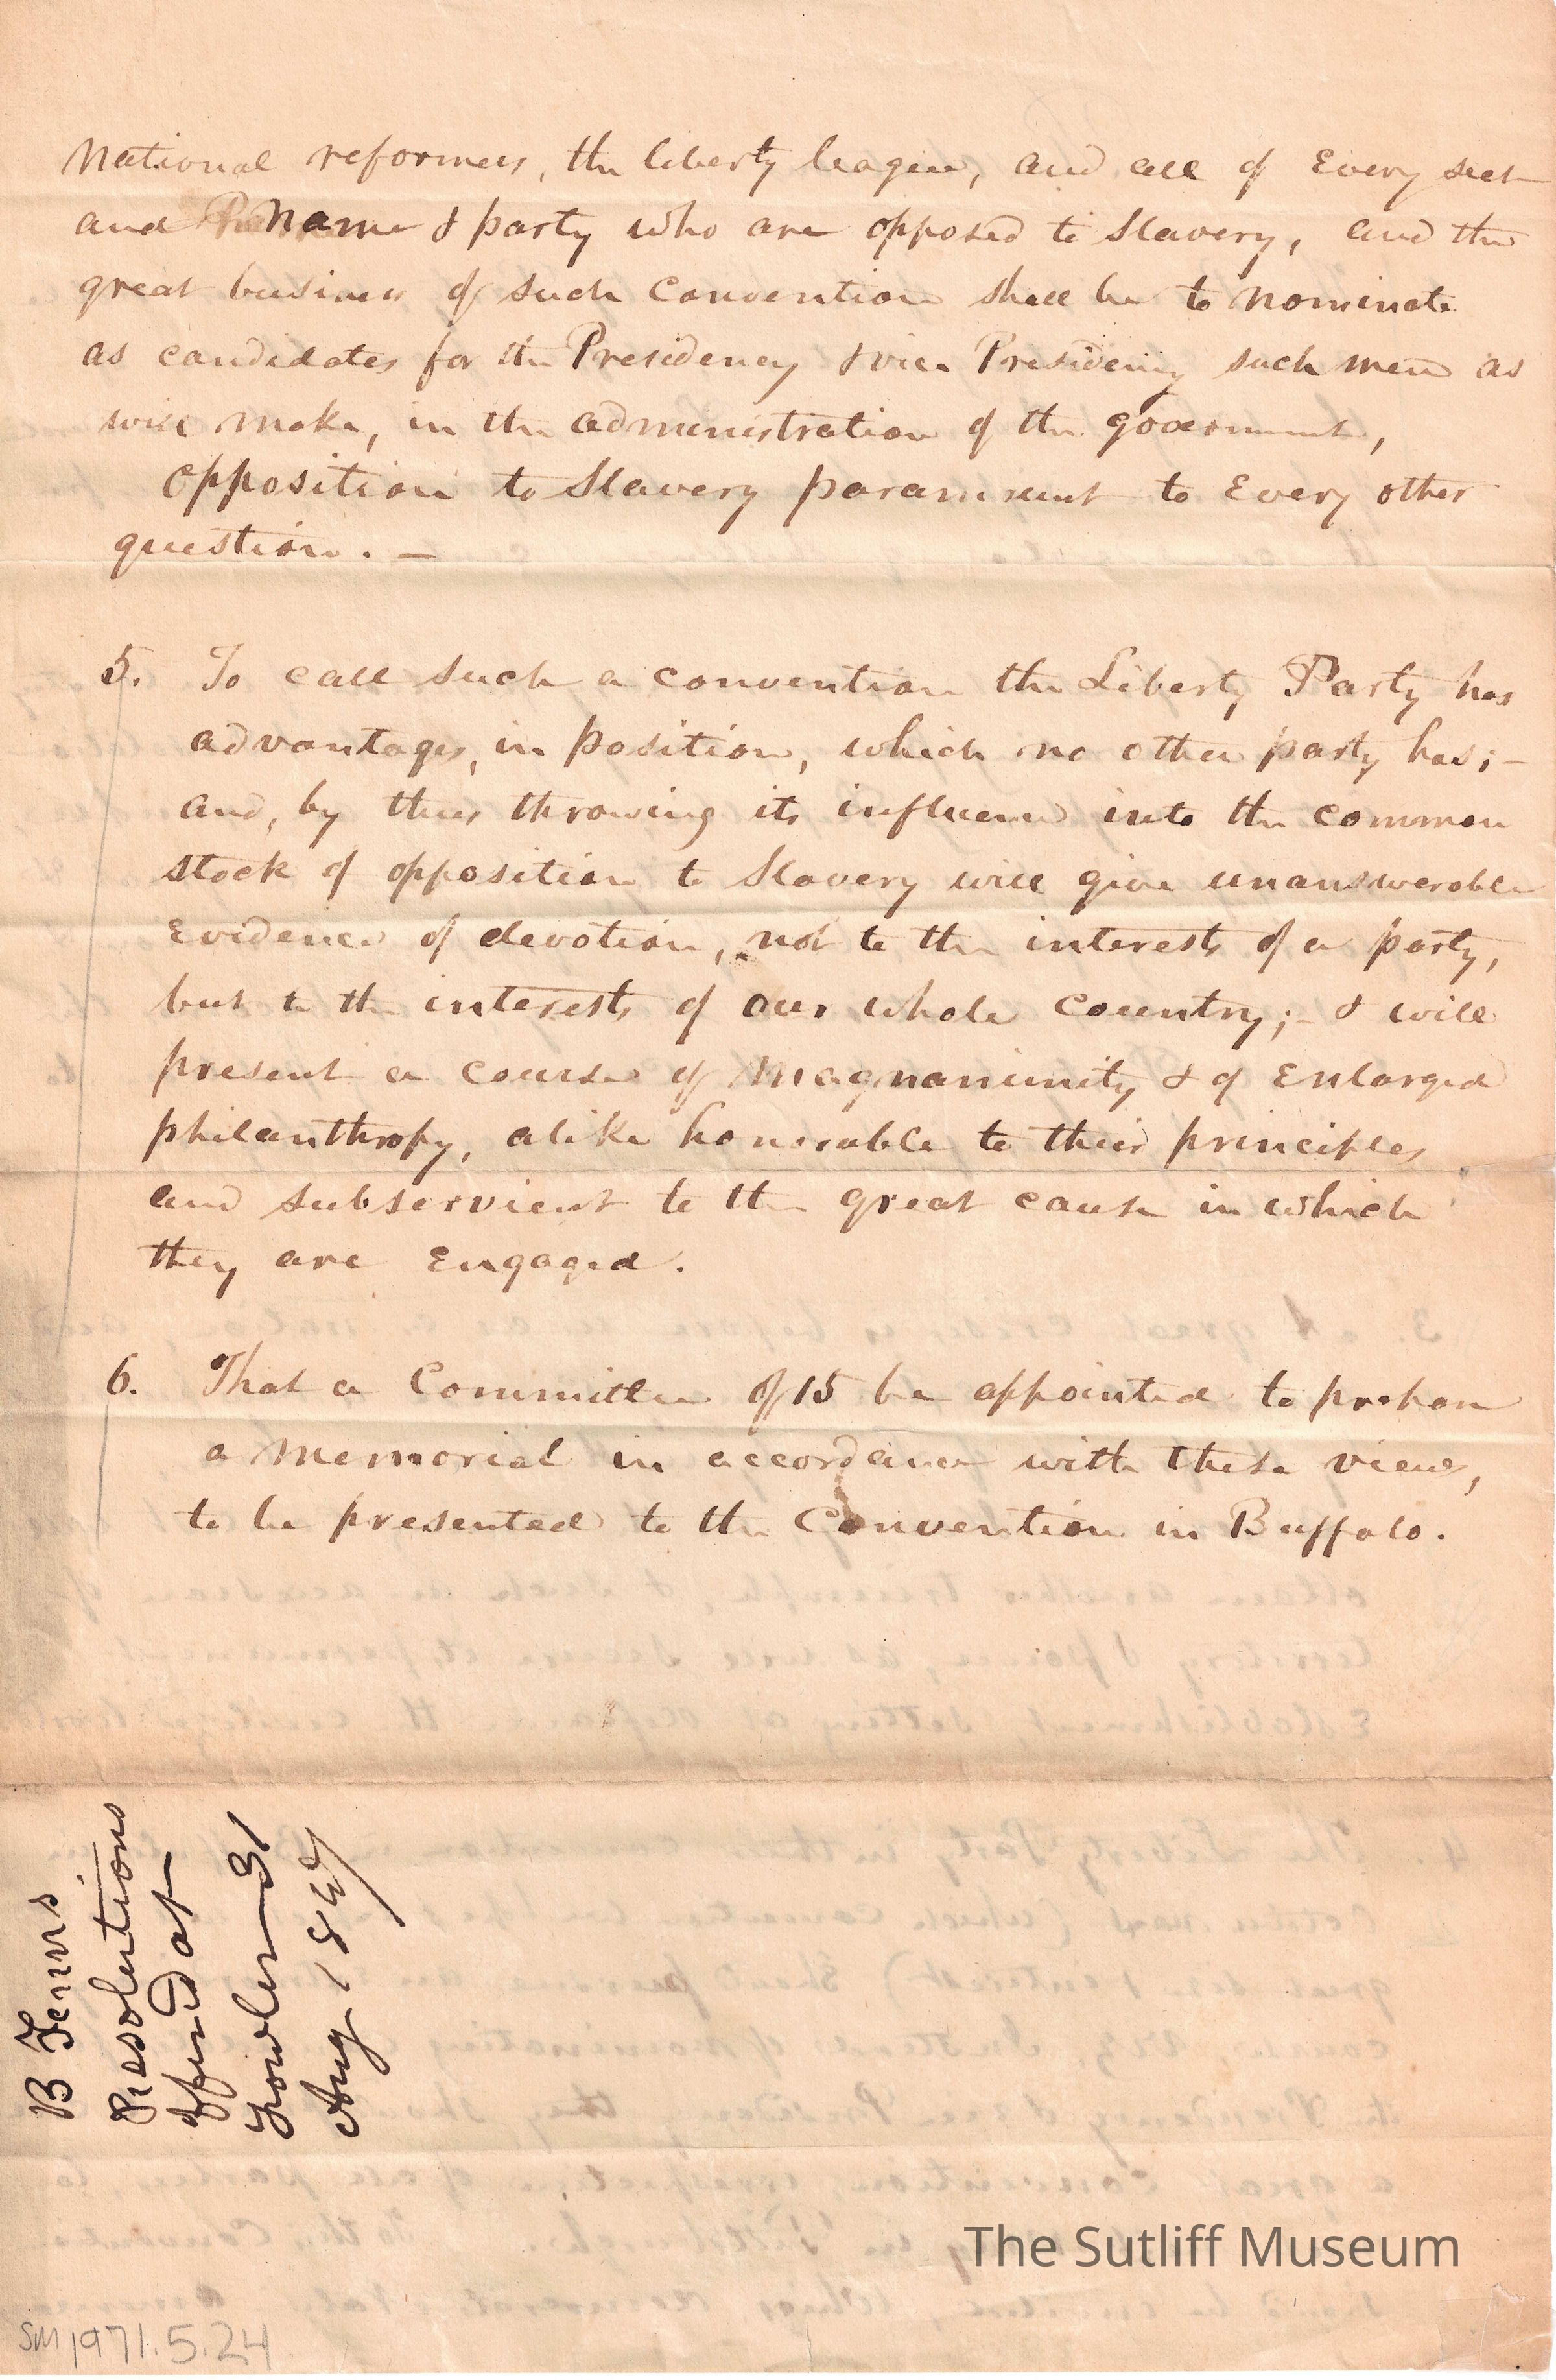 National reformers, the liberty league, and all of Every sect
and Name & party who are opposed to Slavery, and the
great business of such Convention shall be to Nominate
as candidates for the Presidency & vice Presidency such men as
will make, in the administration of the government,
opposition to Slavery paramount to Every other
question. –
5. To call such a convention the Liberty Party has
advantages, in position, which no other party has; –
and, by thus throwing its influence into the common
stock of opposition to Slavery will give unanswerable
Evidence of devotion, not to the interests of a party,
but to the interests of our whole Country; – & will
present a course of Magnanimity & of Enlarged
philanthropy, alike honorable to their principles
and subservient to the great cause in which
they are Engaged.
6. That a Committee of 15 be appointed to prepare
a Memorial in accordance with these views,
to be presented to the Convention in Buffalo.
B
Resolutions
offered at
Fowler 31
Aug 1847
The Sutliff Museum
SM1971.5.24